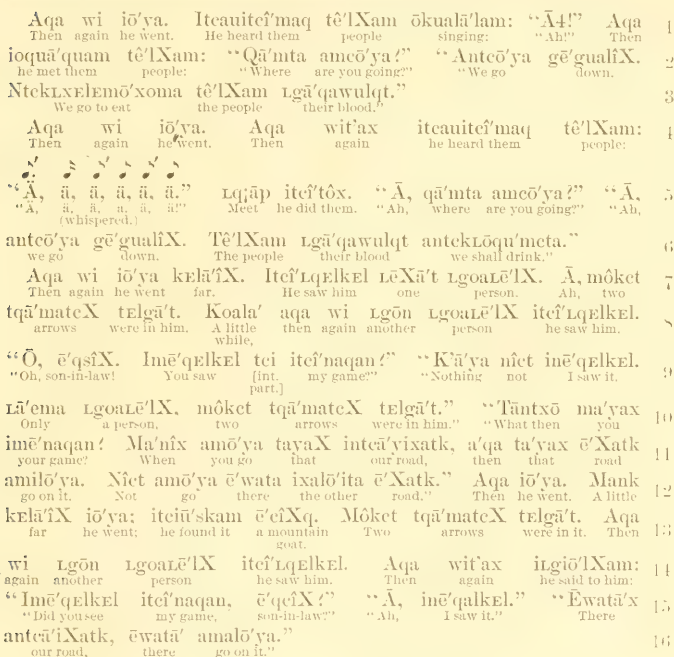 Aqa wi iō'ya. Itcauitcî'maq tê'lXam ōkualā'lam: “Ā4!” Aqa 1
Then again he went. He heard them people singing: “Ah!” Then
ioquā'quam tê'lXam: “Qā'mta amcō'ya?” “Antcō'ya gē'gualîX. 2
he met them people: “Where are you going?” “We go down.
NtckLxElEmō'xoma tê'lXam Lgā'qawulqt.” 3
We go to eat the people their blood.”
Aqa wi iō'ya. Aqa wit'ax itcauitcî'maq tê'lXam: 4
Then again he went. Then again he heard them people:
“Ä, ä, ä, ä, ä, ä.” Lq¡āp itcî'tôx. “Ā, qā'mta amcō'ya?” “Ā, 5
“Ä, ä, ä, a, ä, ä!” Meet he did them. “Ah, where are you going?” “Ah,
(whispered.)
antcō'ya gē'gualîX. Tê'lXam Lgā'qawulqt antckLōqu'mcta.” 6
we go down. The people their blood we shall drink.”
Aqa wi iō'ya kElā'îX. Itcî'LqElkEl LēXā't LgoaLē'lX. Ā, môkct 7
Then again he went far. He saw him one person. Ah, two
tqā'matcX tElgā't. Koala' aqa wi Lgōn LgoaLē'lX itcî'LqElkEl. 8
arrows were in him. A little while, then again another person he saw him.
“Ō, ē'qsîX. Imē'qElkEl tci itcî'naqan?” “K'ā'ya nîct inē'qElkEl. 9
“Oh, son-in-law! You saw [int. part.] my game?” “Nothing not I saw it.
Lā'ema LgoaLē'lX, môkct tqā'matcX tElgā't.” “Tāntxō ma'yax 10
Only a person, two arrows were in him.” “What then you
imē'naqan? Ma'nîx amō'ya tayaX intcā'yixatk, a'qa ta'yax ē'Xatk 11
your game? When you go that our road, then that road
amilō'ya. Nîct amō'ya ē'wata ixalō'ita ē'Xatk.” Aqa iō'ya. Mank 12
go on it. Not go there the other road.” Then he went. A little
kElā'îX iō'ya; itciū'skam ē'cîXq. Môkct tqā'matcX tElgā't. Aqa 13
far he went; he found it a mountain goat. Two arrows were in it. Then
wi Lgōn LgoaLē'lX itcî'LqElkEl. Aqa wit'ax iLgiō'lXam: 14
again another person he saw him. Then again he said to him:
“Imē'qElkEl itcî'naqan, ē'qcîX?” “Ā, inē'qalkEl.” “Ēwatā'x 15
“Did you see my game, son-in-law?” “Ah, I saw it.” “There
antcā'iXatk, ēwatā' amalō'ya.” 16
our road, there go on it.”